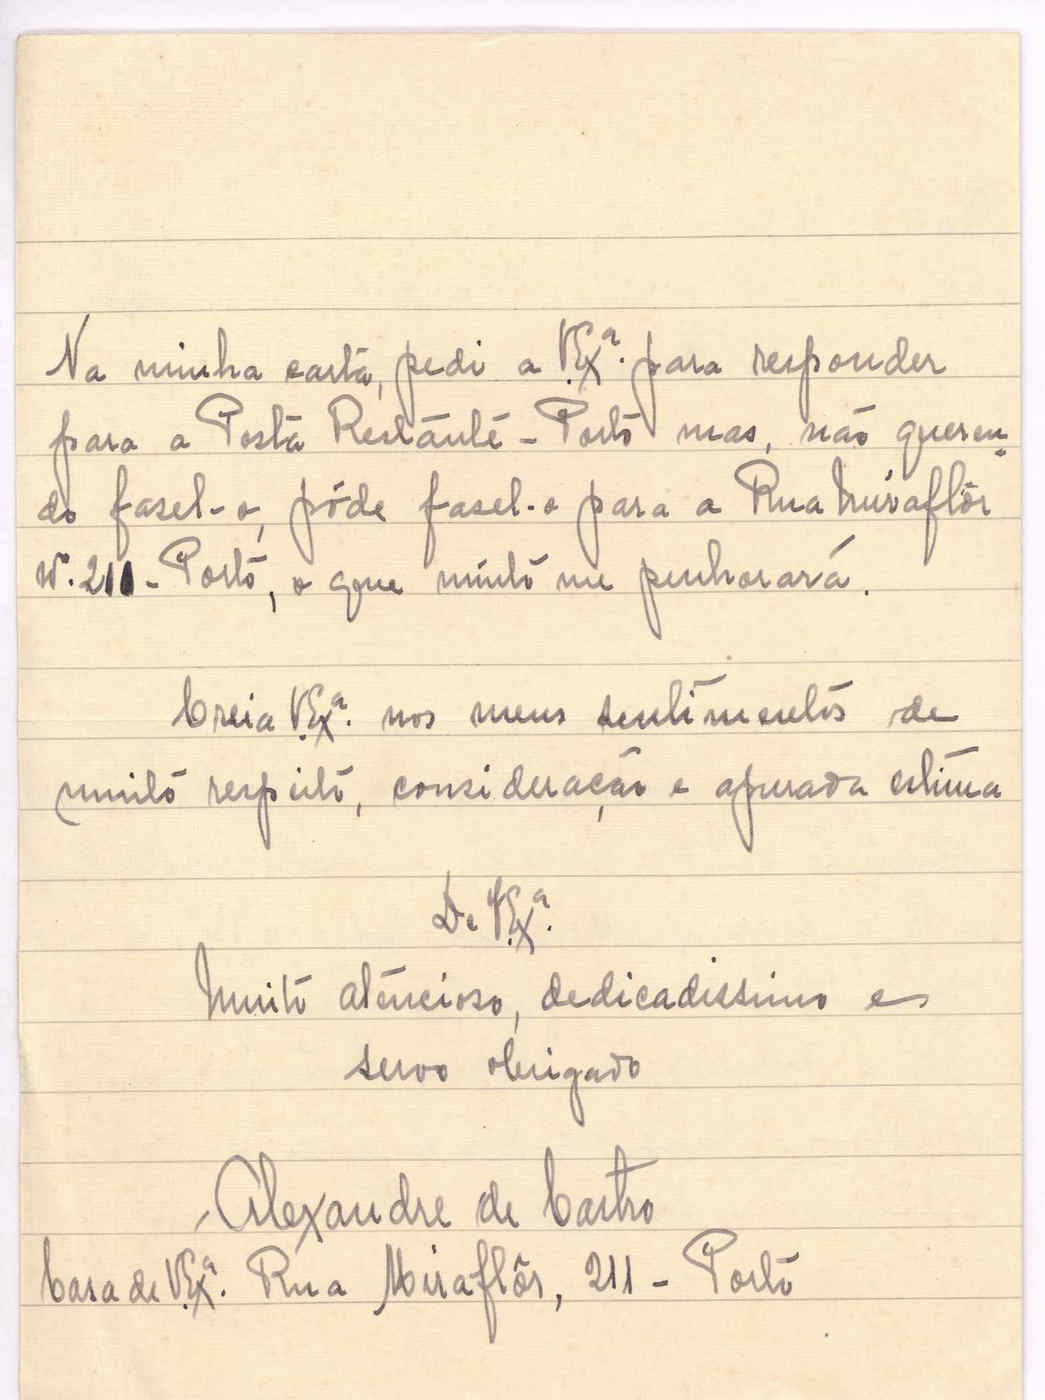 Na minha carta, pedi a V.Exª. para responder
para a Posta Restante - Porto mas, não queren-
do fasel-o, póde fasel-o para a Rua Miraflôr
Nº. 211 - Porto, o que muito me penhorará.
Creia V.Exª. nos meus sentimentos de
muito respeito, consideração e apurada estima
De V.Exª.
Muito atencioso, dedicadissimo e
servo obrigado
Alexandre de Castro
Casa de V.Exª. Rua Miraflôr, 211 - Porto